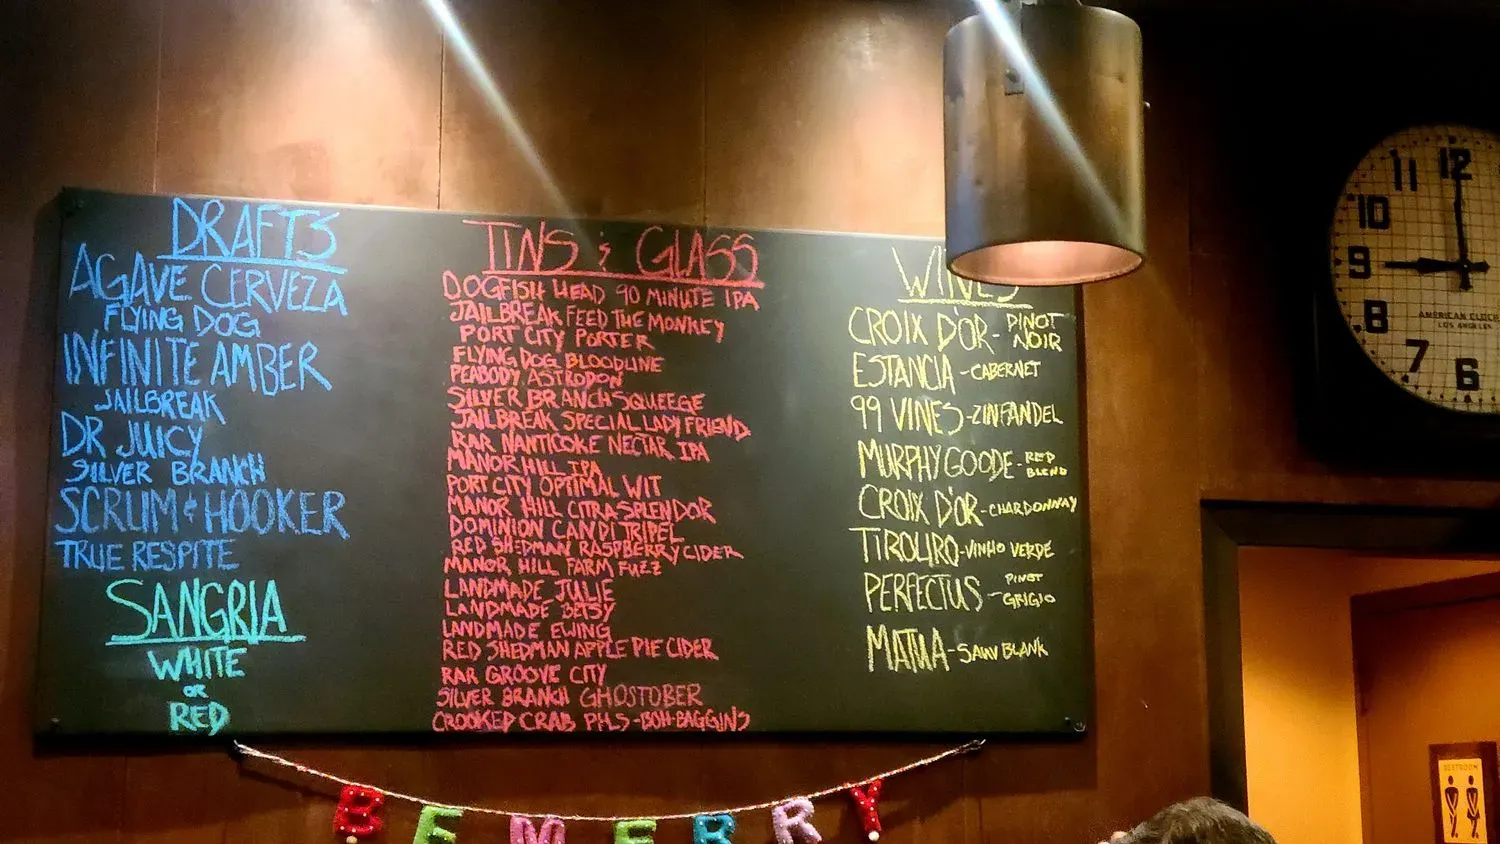 DRAFTS
AGAVE CERVEZA
FLYING DOG
INFINITE AMBER
JAILBREAK
DR JUICY
SILVER BRANCH
SCRUM & HOOKER
TRUE RESPITE
SANGRIA
WHITE
OR
RED
TINS & GLASS
DOGFISH HEAD 90 MINUTE IPA
JAILBREAK FEED THE MONKEY
PORT CITY PORTER
FLYING DOG BLOODLINE
PEABODY ASTRODON
SILVER BRANCH SQUEEGE
JAILBREAK SPECIAL LADY FRIEND
RAR NANTICOKE NECTAR IPA
MANOR HILL IPA
PORT CITY OPTIMAL WIT
MANOR HILL CITRA SPLENDOR
DOMINION CANDI TRIPEL
RED SHEDMAN RASPBERRY CIDER
MANOR HILL FARM FUZZ
LANDMADE JULIE
LANDMADE BETSY
LANDMADE EWING
RED SHEDMAN APPLE PIE CIDER
RAR GROOVE CITY
SILVER BRANCH GHOSTOBER
CROOKED CRAB PHLS-BOH-BAGGINS
WINES
CROIX D'OR - PINOT NOIR
ESTANCIA - CABERNET
99 VINES - ZINFANDEL
MURPHY GOODE - RED BLEND
CROIX D'OR - CHARDONNAY
TIROLIRO - VINHO VERDE
PERFECTUS - PINOT GRIGIO
MATUA - SAUV BLANK
BE MERRY
12
11
10
9
8
7
6
AMERICAN CLOCK
LOS ANGELES
RESTROOM